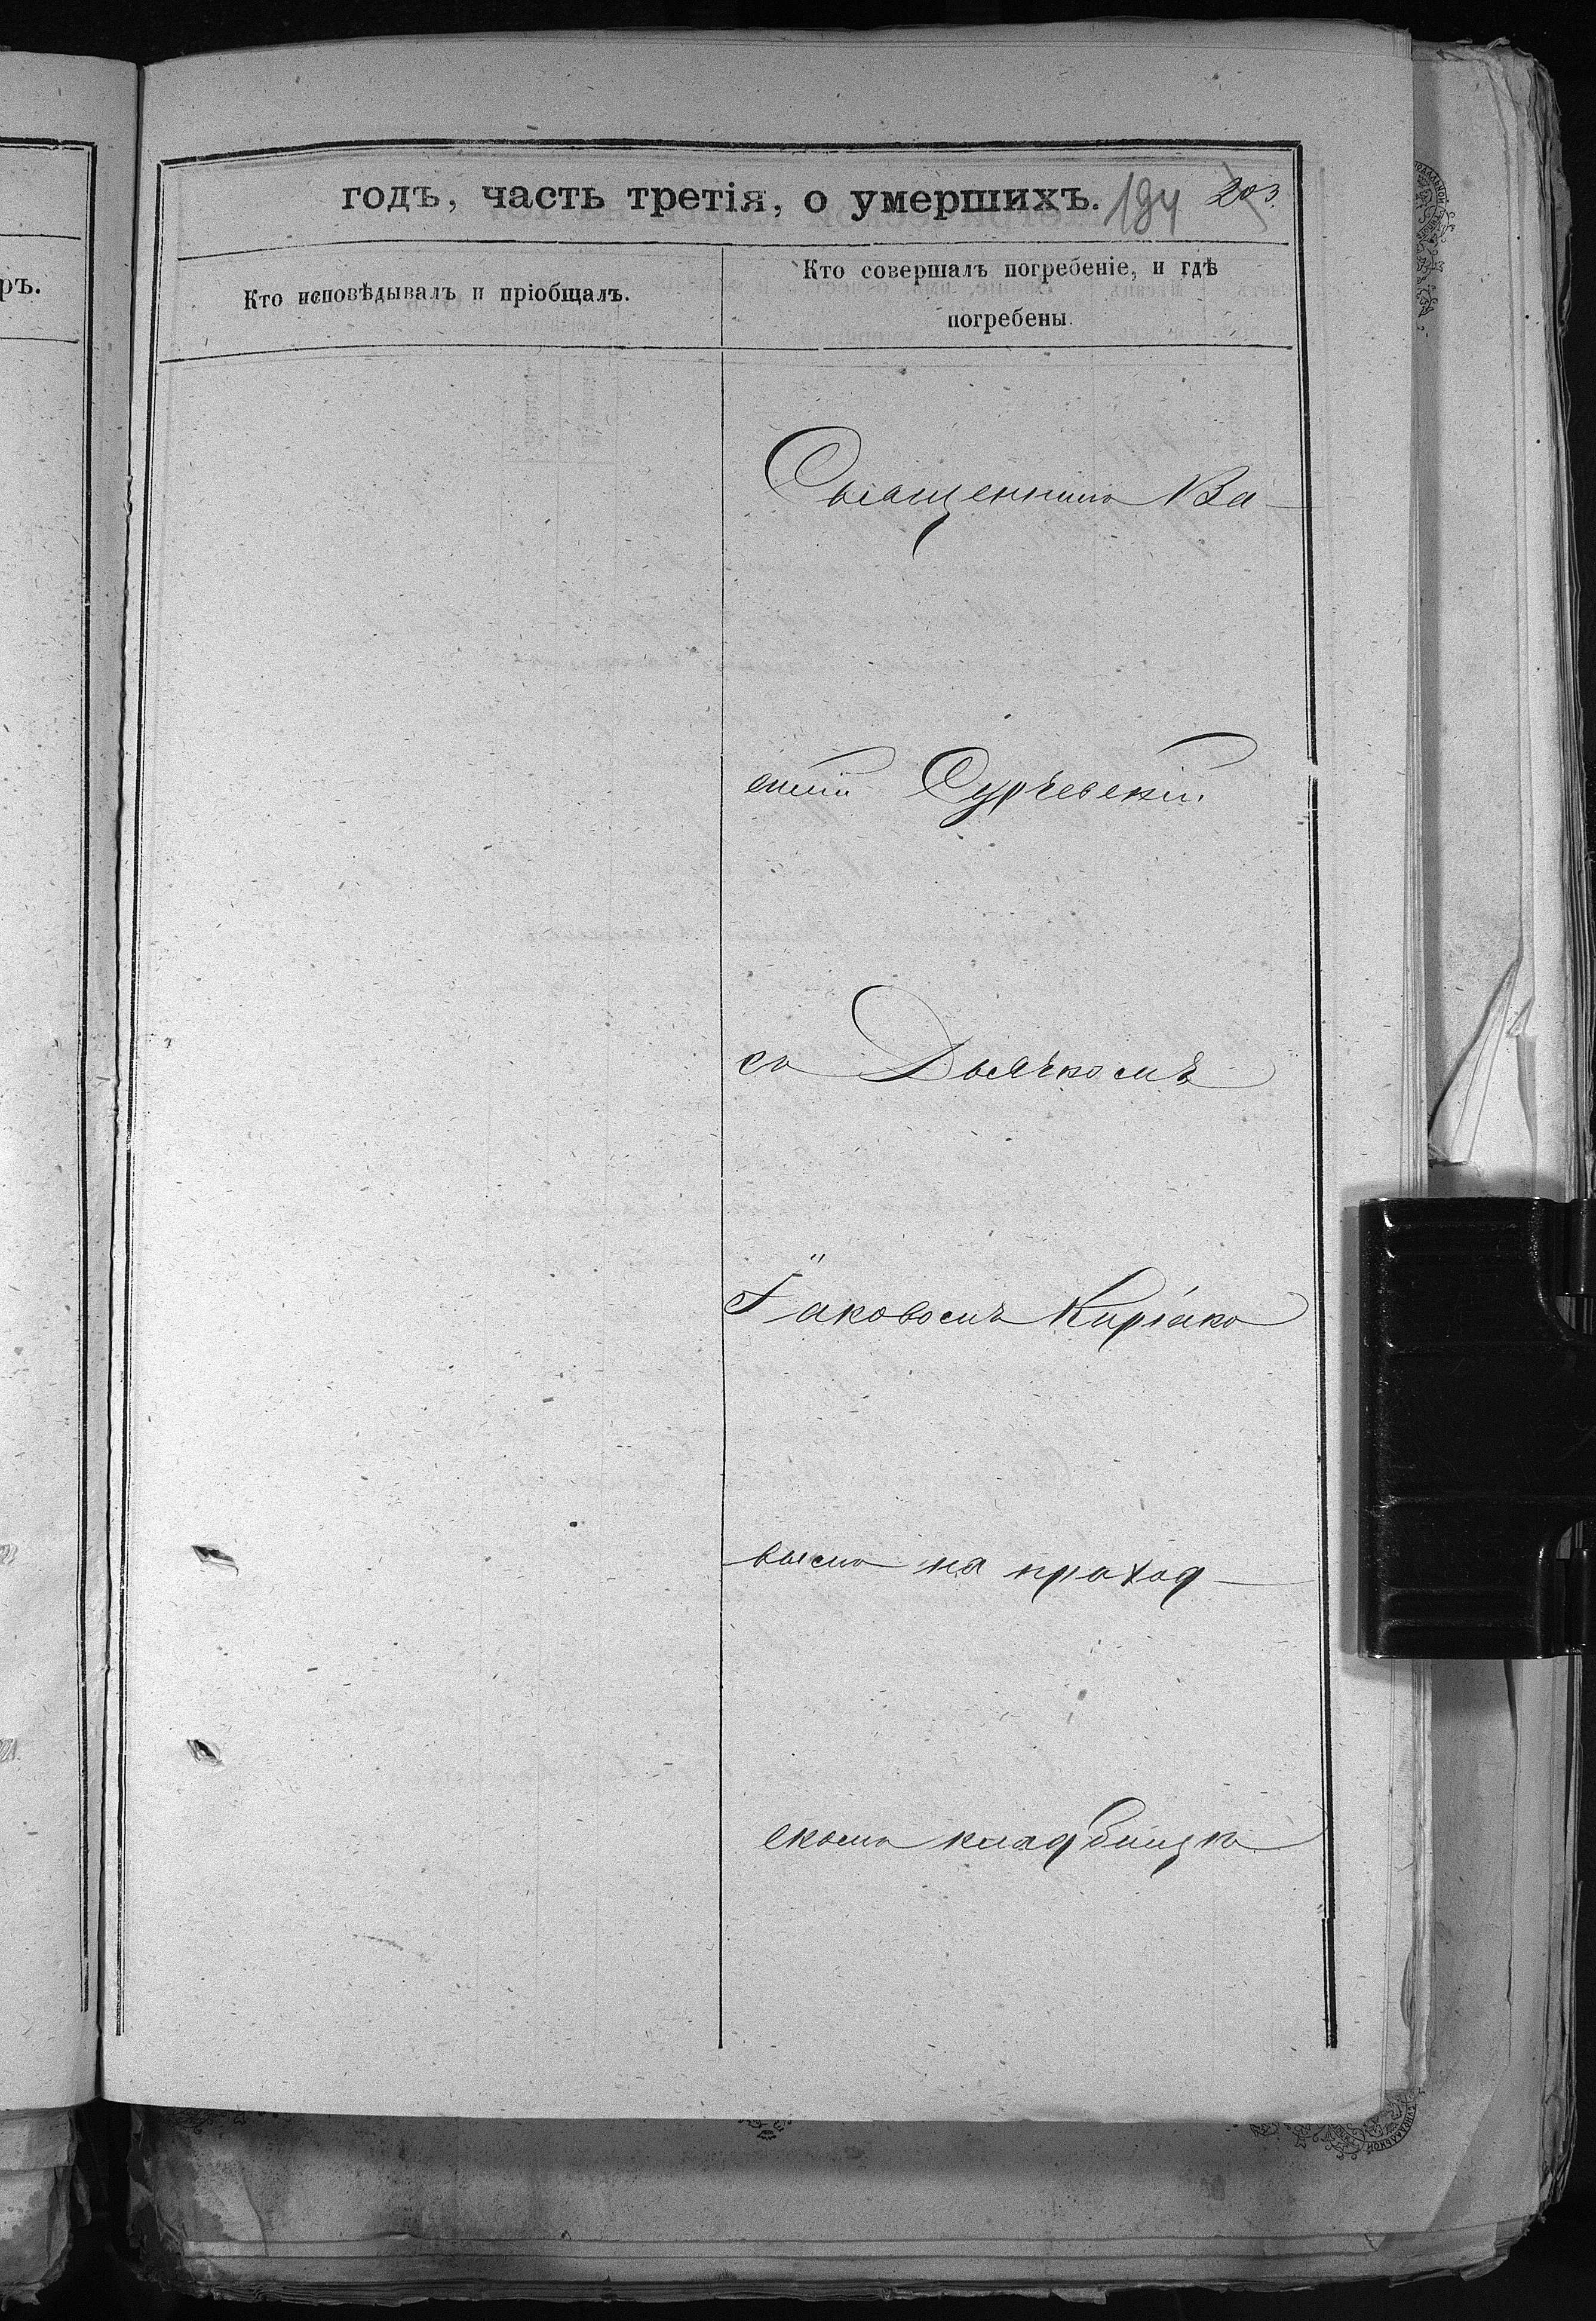 ръ.
годъ, часть третія, о умершихъ. 194 203.
Кто исповѣдывалъ и пріобщалъ.
Кто совершалъ погребеніе, и гдѣ
погребены
Священникъ Ва-
силій Сурчевскій
съ Дьячкомъ
Іаковомъ Киріако
вымъ на приход-
скомъ кладбищѣ